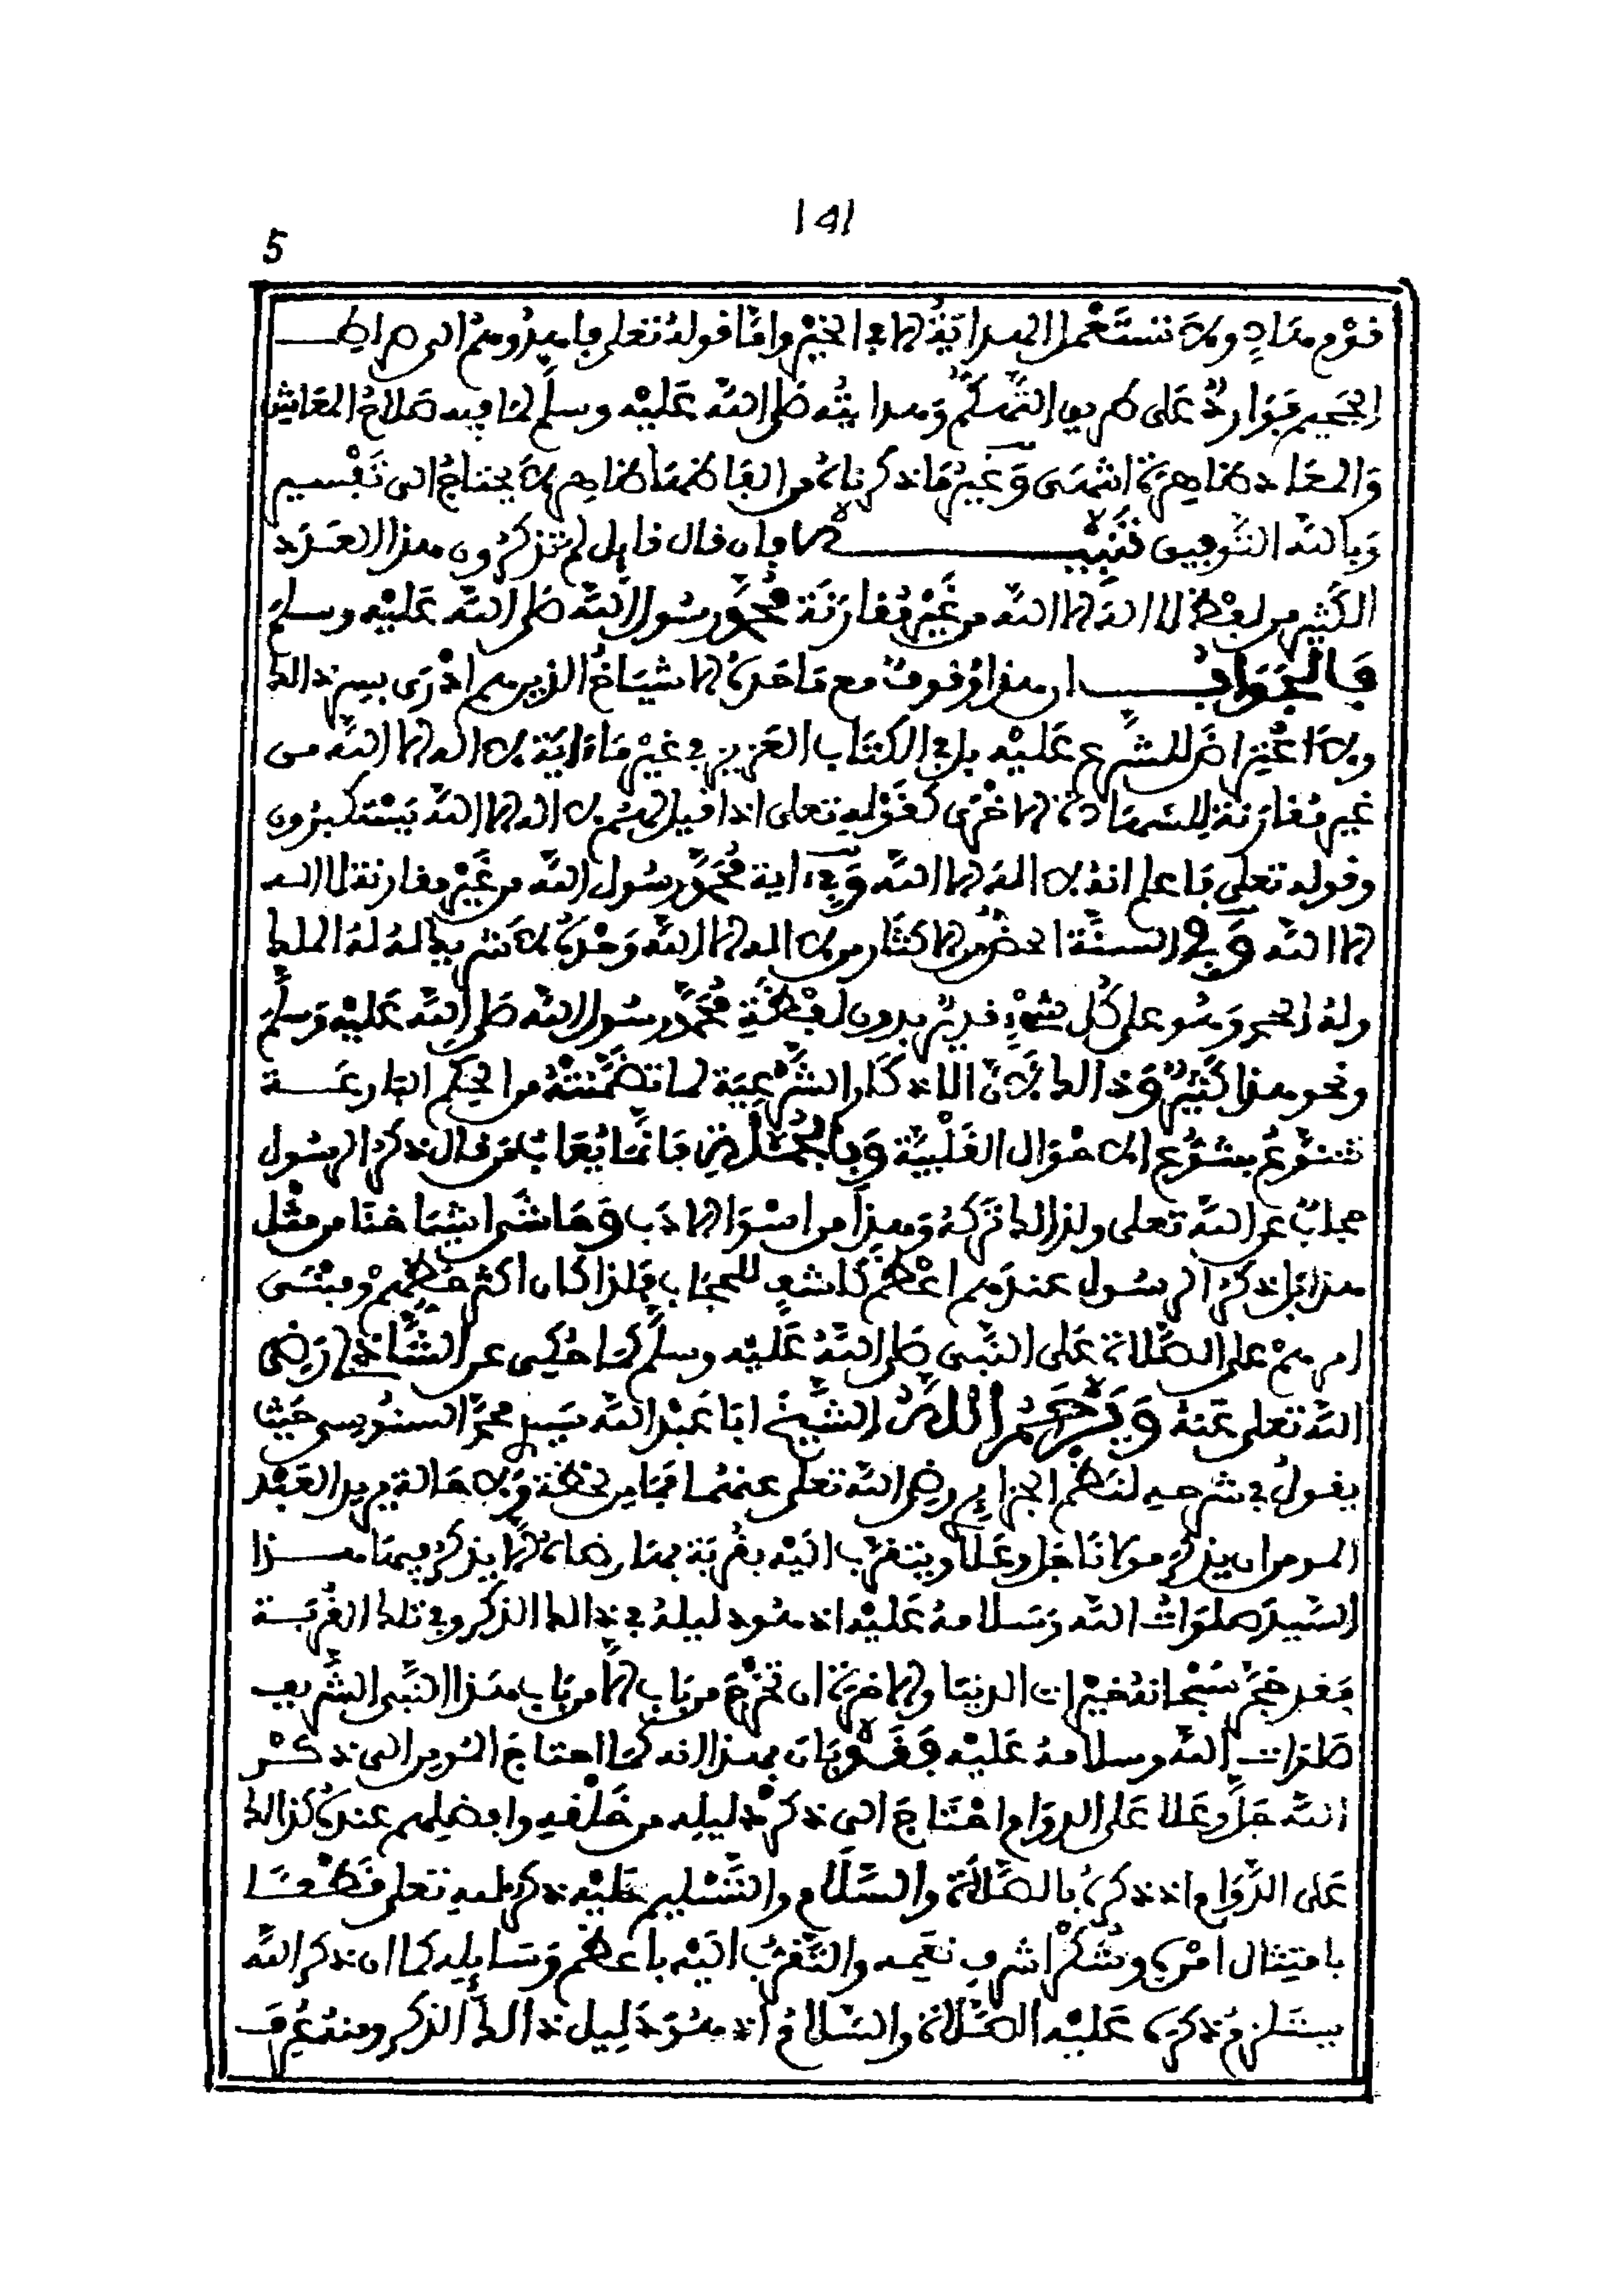 141
5
قوم هاد ولا تستعمل الهداية إلا في الخير وأما قوله تعلى فاهدوهم الى صراط
الجحيم فوارد على طريق التهكم وهدايته صلى الله عليه وسلم لما فيه صلاح المعاش
والمعاد ظاهرة اشهى وغير ما ذكرناه من الفاظها ظاهر لا يحتاج الى تفسير
وبالله التوفيق تنبيه فإن قال قايل لم تذكرون هذا العدد
الكثير من لفظ لا اله الا الله من غير مقارنة محمد رسول الله صلى الله عليه وسلم
فالجواب ان هذا وقوف مع ما حده الاشياخ الذين هم ادرى بسر ذالك
ولا اعتراض للشرع عليه بل في الكتاب العزيز في غير ما ءاية لا اله الا الله من
غير مقارنة للشهادة الاخرى كقوله تعلى اذا قيل لهم لا اله الا الله يستكبرون
وقوله تعلى فاعلم انه لا اله الا الله وفي ءاية محمد رسول الله من غير مقارنة لا اله
الا الله وفي السنة الحض من الاكثار من لا اله الا الله وحده لا شريك له له الملك
وله الحمد وهو على كل شيء قدير بدون لفظة محمد رسول الله صلى الله عليه وسلم
ونحو هذا كثير وذالك لان الاذكار الشرعية لما تضمنته من الحكم البارعة
تتنوع بتنوع الاحوال القلبية وبالجملة فإنما يعاب من قال ذكر الرسول
حجاب عن الله تعلى ولذالك تركه وهذا من اسوإ الادب وحاشى اشياخنا من مثل
هذا بل ذكر الرسول عندهم اعظم كاشف للحجاب فلذا كان اكثر حظهم ومبنى
امرهم على الصلاة على النبي صلى الله عليه وسلم كما حكي عن الشاذلي رضي
الله تعلى عنه ويرحم الله الشيخ ابا عبد الله سيد محمد السنوسي حيث
يقول في شرحه لنظم الجزايري رضي الله تعلى عنهما فما من لحظة ولا حالة يريد العبد
المومن ان يذكر مولانا جل وعلا ويتقرب اليه بقربة بها رضاه الا يذكر فيها هذا
السيد صلوات الله وسلامه عليه اذ هو دليله في ذالك الذكر وفي تلك القربة
فقد حجر سبحانه خيرات الدنيا والاخرة ان تخرج من باب الا من باب هذا النبي الشريف
صلوات الله وسلامه عليه فقد بان بهذا انه كما احتاج المريد الى ذكر
الله جل وعلا على الدوام احتاج الى ذكر دليله من خلقه وافضلهم عنده كذالك
على الدوام اذ ذكره بالصلاة والسلام والتسليم عليه ذكر لله تعلى قطعا
بامتثال امره وشكر اشرف نعمه والتقرب اليه باعظم وسايله كما ان ذكر الله
يستلزم ذكره عليه الصلاة والسلام اذ هو دليل ذالك الذكر ومنه عرف